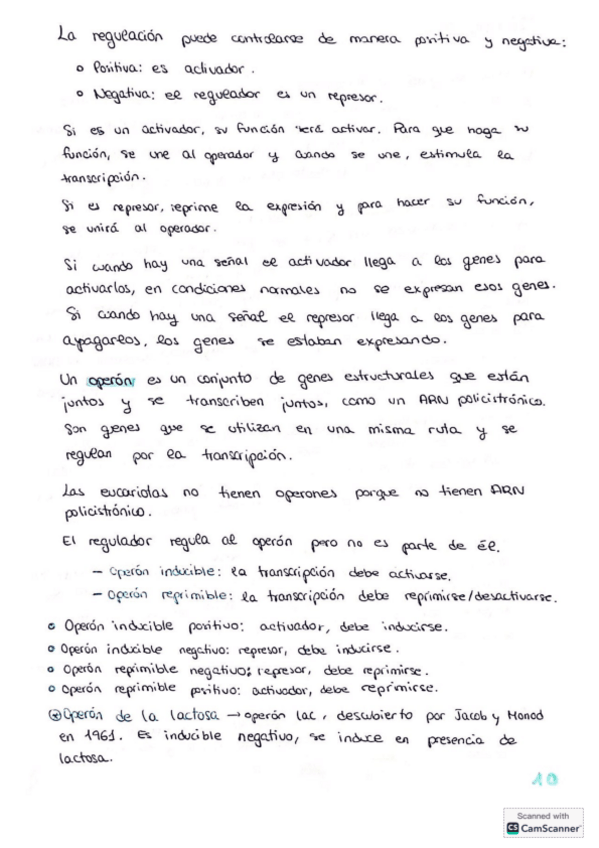 La regulación puede controlarse de manera positiva y negativa:
o Positiva: es activador.
o Negativa: el regulador es un represor.
Si es un activador, su función será activar. Para que haga su
función, se une al operador y cuando se une, estimula la
transcripción.
Si es represor, reprime la expresión y para hacer su función,
se unirá al operador.
Si cuando hay una señal el activador llega a los genes para
activarlos, en condiciones normales no se expresan esos genes.
Si cuando hay una señal el represor llega a los genes para
apagarlos, los genes se estaban expresando.
Un operón es un conjunto de genes estructurales que están
juntos y se transcriben juntos, como un ARN policistrónico.
Son genes que se utilizan en una misma ruta y se
regulan por la transcripción.
Las eucariotas no tienen operones porque no tienen ARN
policistrónico.
El regulador regula al operón pero no es parte de él.
- Operón inducible: la transcripción debe activarse.
- Operón reprimible: la transcripción debe reprimirse/desactivarse.
o Operón inducible positivo: activador, debe inducirse.
o Operón inducible negativo: represor, debe inducirse.
o Operón reprimible negativo: represor, debe reprimirse.
o Operón reprimible positivo: activador, debe reprimirse.
Operón de la lactosa → operón lac, descubierto por Jacob y Monod
en 1961. Es inducible negativo, se induce en presencia de
lactosa.
10
Scanned with
CS CamScanner